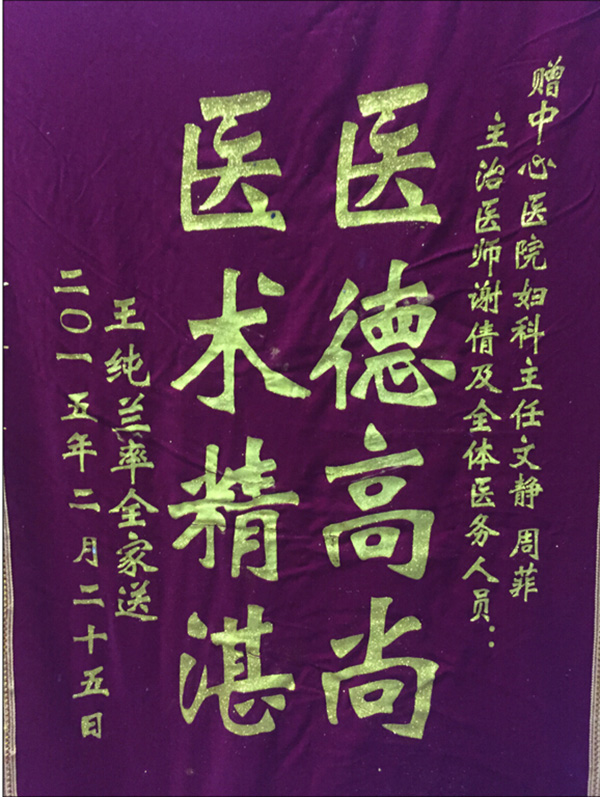 赠中心医院妇科主任文静 周菲
主治医师谢倩及全体医务人员：
医德高尚
医术精湛
王纯兰率全家送
二〇一五年二月二十五日